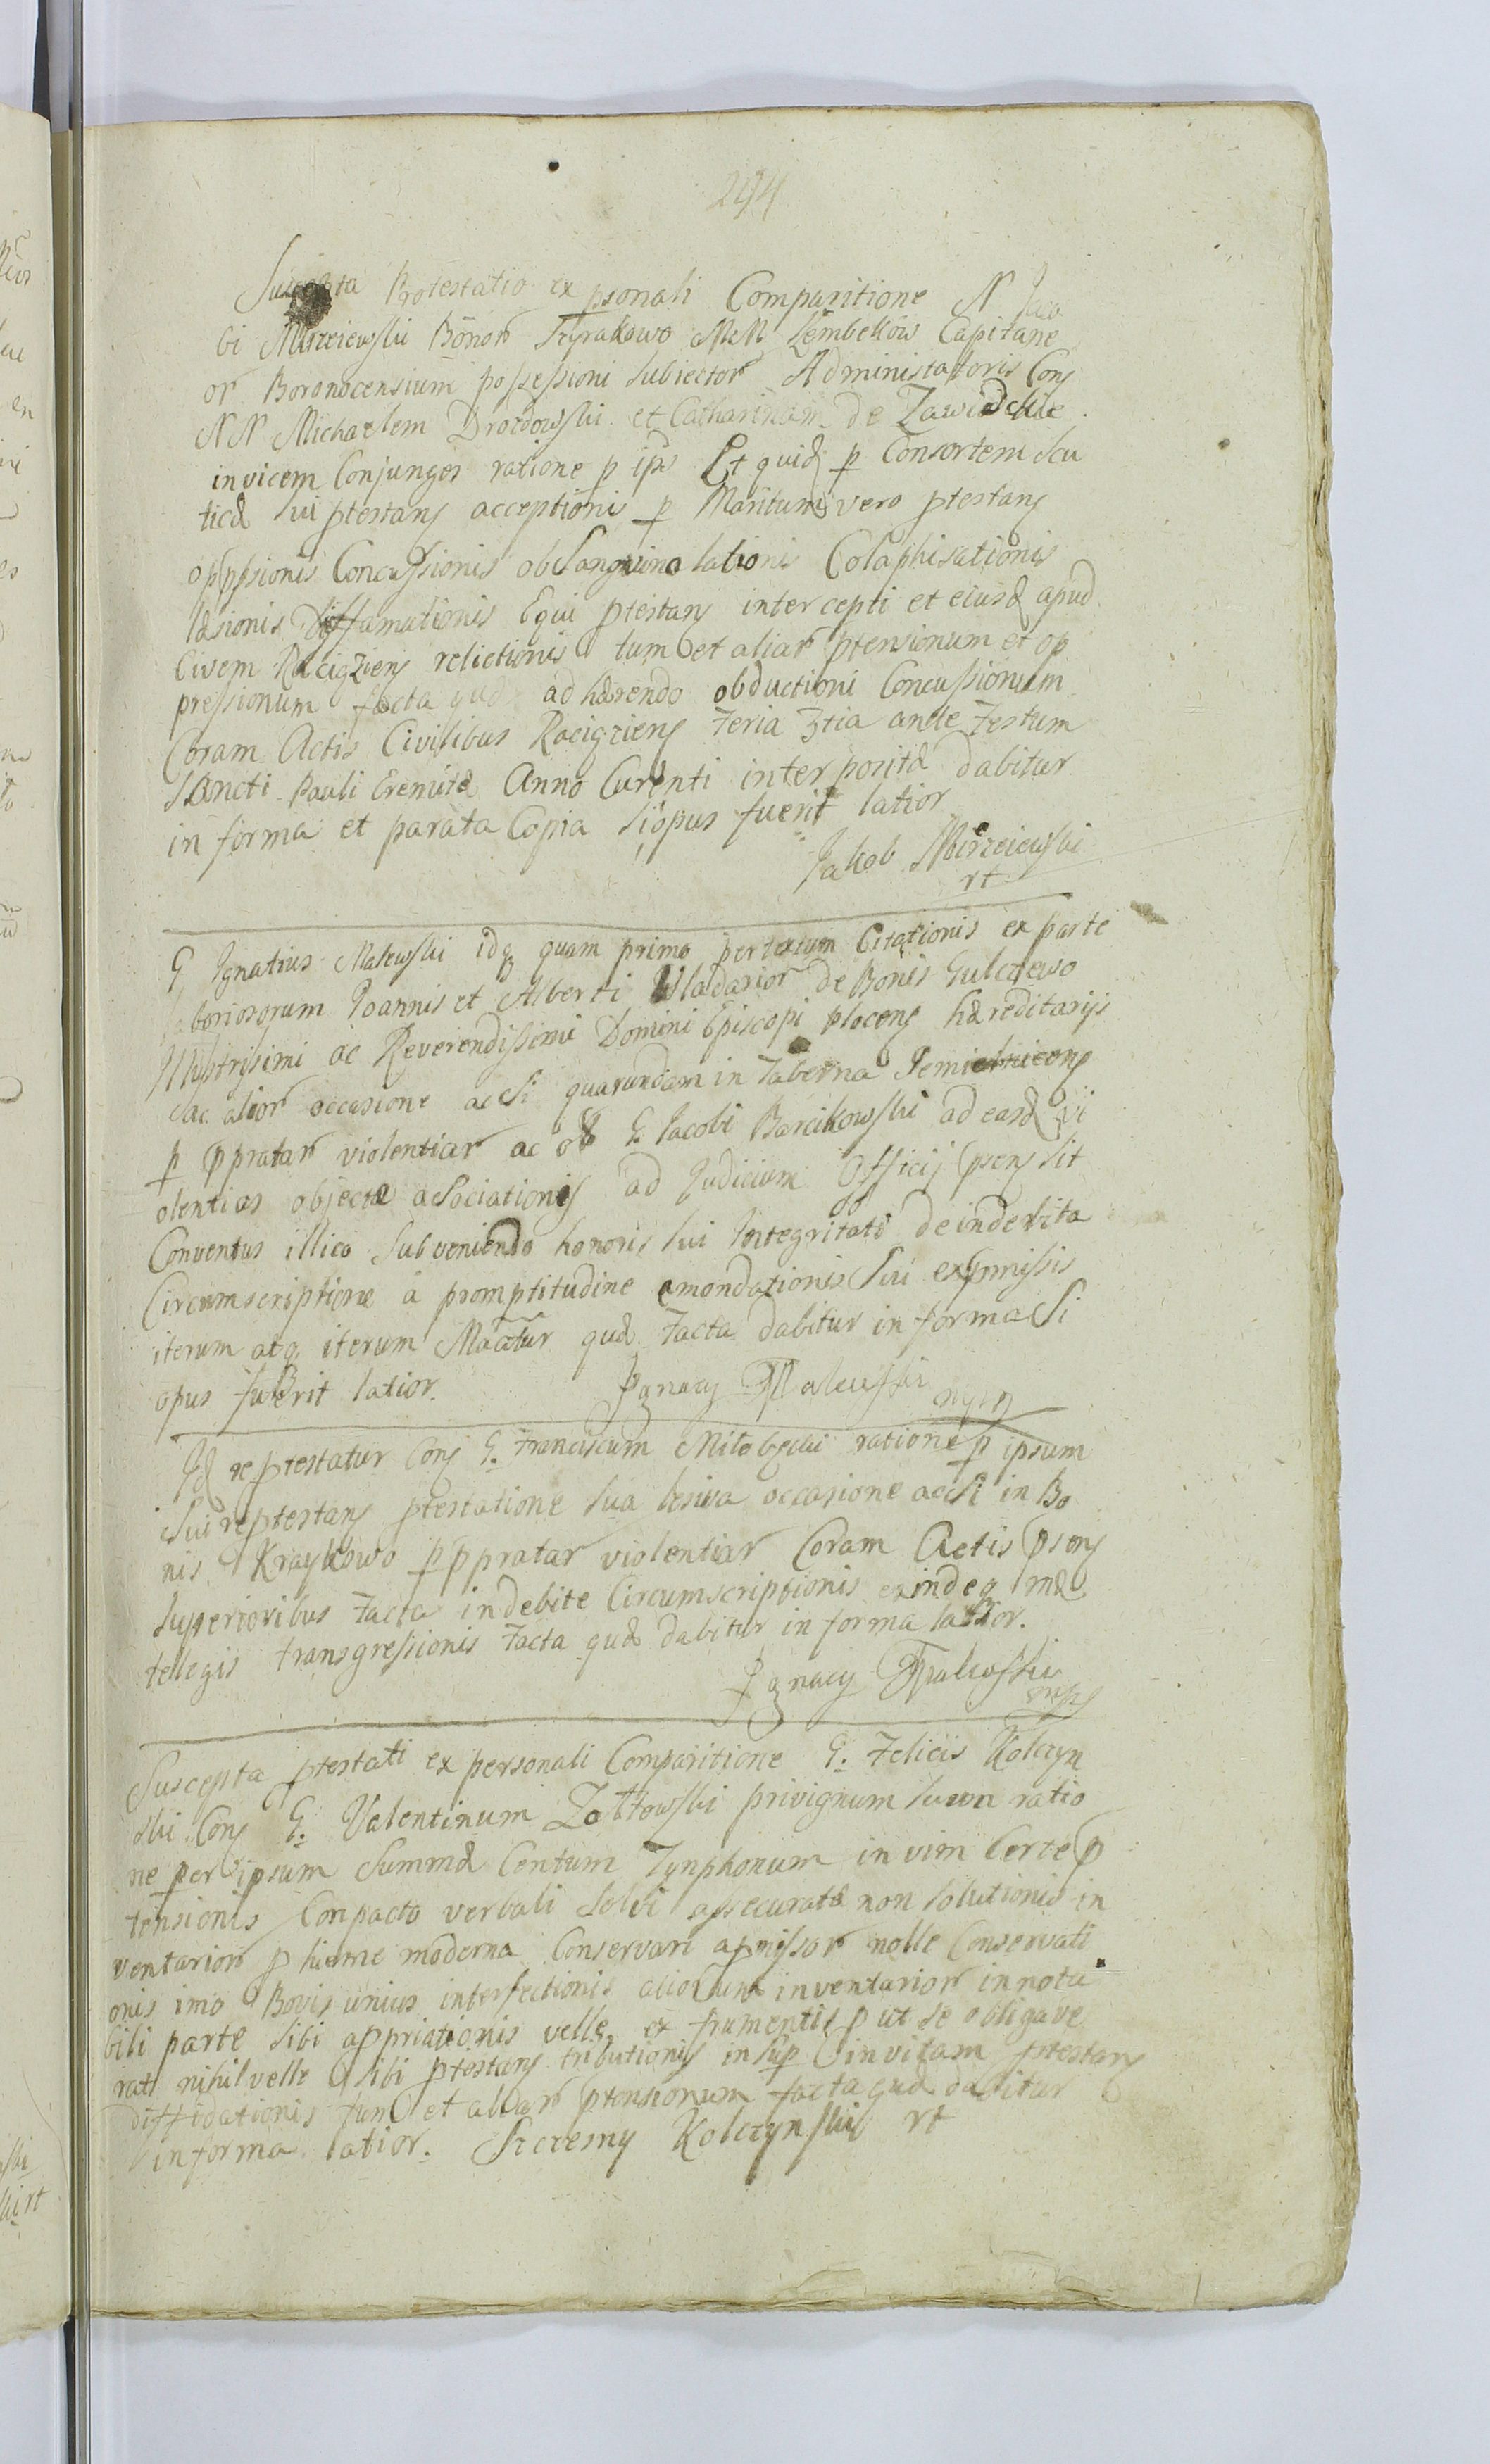 294
Suscepta Protestatio ex psonali Comparitione N Jaco
bi Mirzeiewski Bonor Szyrakowo MM Lembekow Capitane
or Boronocensium possessioni subiector Administratoris Cons
NN Michaelem Drozdowski et Catharinam de Zawidzkie
invicem Conjunges ratione p ips Et quid p Consortem Scu
ticæ sui ptestans acceptionis p Maritum vero ptestans
oppsionis Concussionis obsangvinolationis Colaphisationis
læsionis Diffamationis Equi ptestans intercepti et eiusd apud
Civem Raciąziens relictionis tum et aliar ptensionum et op
pressionum facta quæ adhærendo obductioni Concussionum
Coram Actis Civilibus Raciąziens Feria 3tia ante Festum
Sancti Pauli Eremitæ Anno Curenti interpositæ dabitur
in forma et parata Copia si opus fuerit latior
Jakob Mirzeiewski
rt
G Ignatius Malewski idq quam primo pertextum Citationis ex parte
laboriosorum Joannis et Alberti Wladarior de Bonis Gulczewo
Illustrisimi ac Reverendissimi Domini Episcopi plocens hæreditarijs
ac alior occasione acsi quarundam in Taberna
p ppratar violentiar ac ob G. Jacobi Barcikowski ad easd vi
olentias objectæ asociationis ad Judicium Officij psens sit
Conventus illico subveniendo honoris sui Integritati de indebita
Circumscriptione a promptitudine emondationis sui expmissis
iterum atq iterum Maatur quæ Facta dabitur in forma si
opus fuerit latior. Jgnacy Malewski
mpp
Jd reptestatur Cons G. Franciscum Milobęcki ratione p ipsum
sui reptestans ptestatione sua lesiva occasione acsi in Bo
nis Kraykowo p ppratar violentiar Coram Actis psens
superioribus Facta indebite Circumscriptionis exindeq mæ
telegis transgressionis Facta quæ dabitur in forma latior.
Jgnacy Malewski
mpp
Suscepta ptestati ex personali Comparitione G. Felicis Kolczyn
ski Cons G. Valentinum Zołtowski privignum suum ratio
ne per ipsum Summæ Centum Tynphonum in vim Certe p
tensionis Conpacto verbali Solvi assecuratæ non solutionis in
ventarior p hieme moderna Conservari apmissor nolle Conservati
onis imo Bovis unius interfectionis aliorum inventarior in nota
bili parte sibi appriationis velle ex frumentis put se obligave
rat nihil velle sibi ptestans tributionis insup in vitam ptestans
diffidationis tum et aliar ptensionum facta quæ dabitur
in forma latior. Szczesny Kolczynski rt